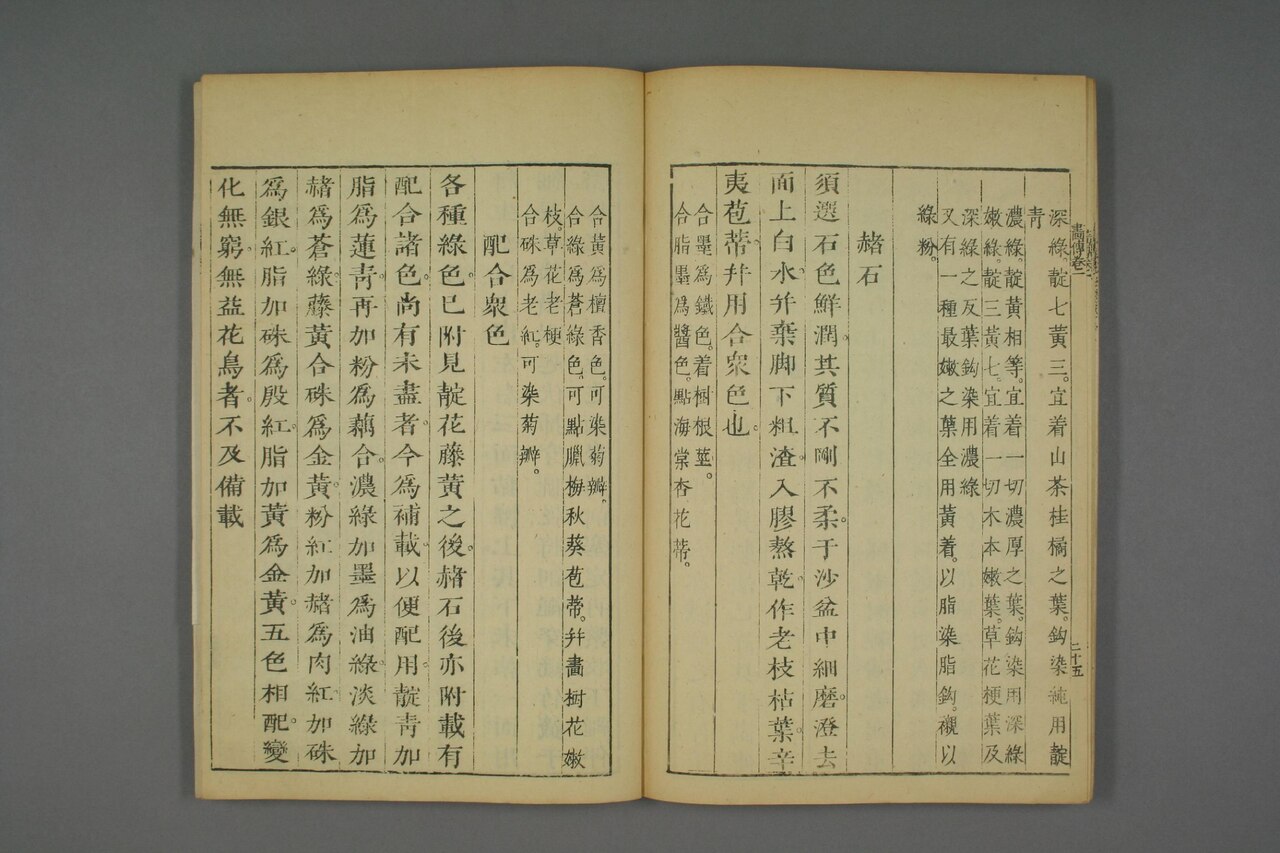 深綠。靛七黃三。宜着山茶桂橘之葉。鈎染純用靛
青
濃綠。靛黃相等。宜着一切濃厚之葉。鈎染用深綠
嫩綠。靛三黃七。宜着一切木本嫩葉。草花梗葉及
深綠之反葉鈎染用濃綠
又有一種最嫩之葉全用黃着。以脂染脂鈎。襯以
綠粉。
赭石
須選石色鮮潤。其質不剛不柔。于沙盆中細磨。澄去
面上白水。幷棄脚下粗渣。入膠熬乾。作老枝枯葉。辛
夷苞蒂。幷用合衆色也。
合墨爲鐵色。着樹根莖。
合脂墨爲醬色。點海棠杏花蒂。
畫傳卷二
二十五
合黃爲檀香色。可染菊瓣。
合綠爲蒼綠色。可點臘梅秋葵苞蒂。幷畫樹花嫩
枝。草花老梗
合硃爲老紅。可染菊瓣。
配合衆色
各種綠色。已附見靛花藤黃之後。赭石後亦附載有
配合諸色。尚有未盡者。今爲補載。以便配用。靛青加
脂爲蓮青。再加粉爲藕合。濃綠加墨爲油綠。淡綠加
赭爲蒼綠。藤黃合硃爲金黃。粉紅加赭爲肉紅。加硃
爲銀紅。脂加硃爲殷紅。脂加黃爲金黃。五色相配。變
化無窮。無益花鳥者。不及備載